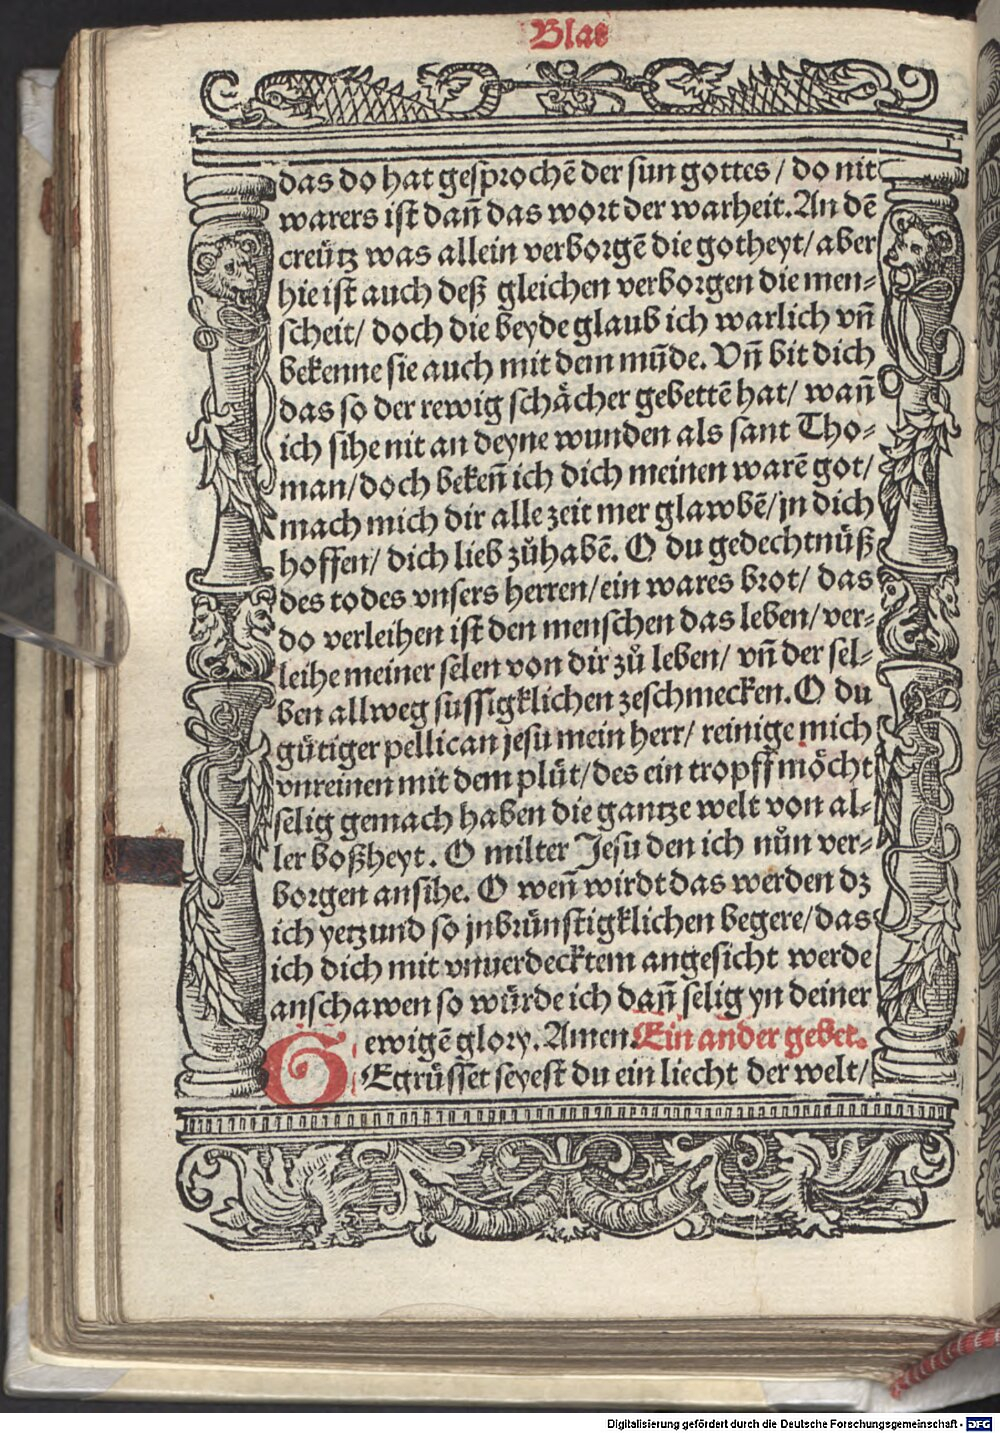 Blat
das do hat gesprochē der sun gottes / do nit
warers ist dañ das wort der warheit. An dē
creütz was allein verborgē die gotheyt / aber
hie ist auch deß gleichen verborgen die men⸗
scheit / doch die beyde glaub ich warlich vñ
bekenne sie auch mit dem mūde. Vñ bit dich
das so der rewig schächer gebettē hat / wañ
ich sihe nit an deyne wunden als sant Tho⸗
man / doch bekeñ ich dich meinen warē got /
mach mich dir alle zeit mer glawbē / jn dich
hoffen / dich lieb zůhabē. O du gedechtnüß
des todes vnsers herren / ein wares brot / das
do verleihen ist den menschen das leben / ver⸗
leihe meiner selen von dir zů leben / vñ der sel⸗
ben allweg sussigklichen zeschmecken. O du
gütiger pellican jesu mein herr / reinige mich
vnreinen mit dem plüt / des ein tropff möcht
selig gemach haben die gantze welt von al⸗
ler boßheyt. O milter Jesu den ich nůn ver⸗
borgen ansihe. O weñ wirdt das werden dz
ich yetzund so jnbrünstigklichen begere / das
ich dich mit vnuerdecktem angesicht werde
anschawen so würde ich dañ selig yn deiner
ewigē glory. Amen. Ein ander gebet.
GEgrüsset seyest du ein liecht der welt /
Digitalisierung gefördert durch die Deutsche Forschungsgemeinschaft - DFG